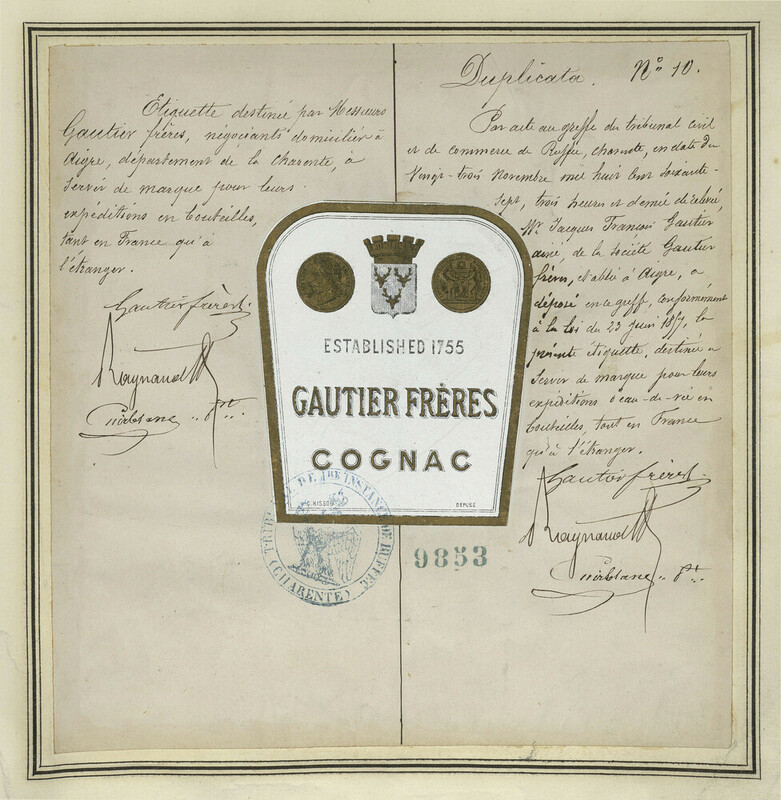 Etiquette destinée par Messieurs
Gautier frères, négociants domiciliés à
Aigre, département de la Charente, à
Servir de marque pour leurs
expéditions en bouteilles,
tant en France qu'à
l'étranger.
Gautier frères
Raynaud
Duplicata. N° 10.
Par acte au greffe du tribunal civil
et de commerce de Ruffec, charente, en date du
Vingt-trois Novembre mil huit cent soixante-
sept, trois heures et demie de relevée,
Mr. Jacques François Gautier
ainé, de la société Gautier
frères, établie à Aigre, a
déposé en ce greffe, conformément
à la loi du 23 juin 1857, la
présente étiquette, destinée a
Servir de marque pour leurs
expéditions d'eau-de-vie en
bouteilles, tant en France
qu'à l'étranger.
Gautier frères
Raynaud
ESTABLISHED 1755
GAUTIER FRÈRES
COGNAC
DEPOSÉ
TRIBUNAL DE 1RE INSTANCE DE RUFFEC
(CHARENTE)
9853